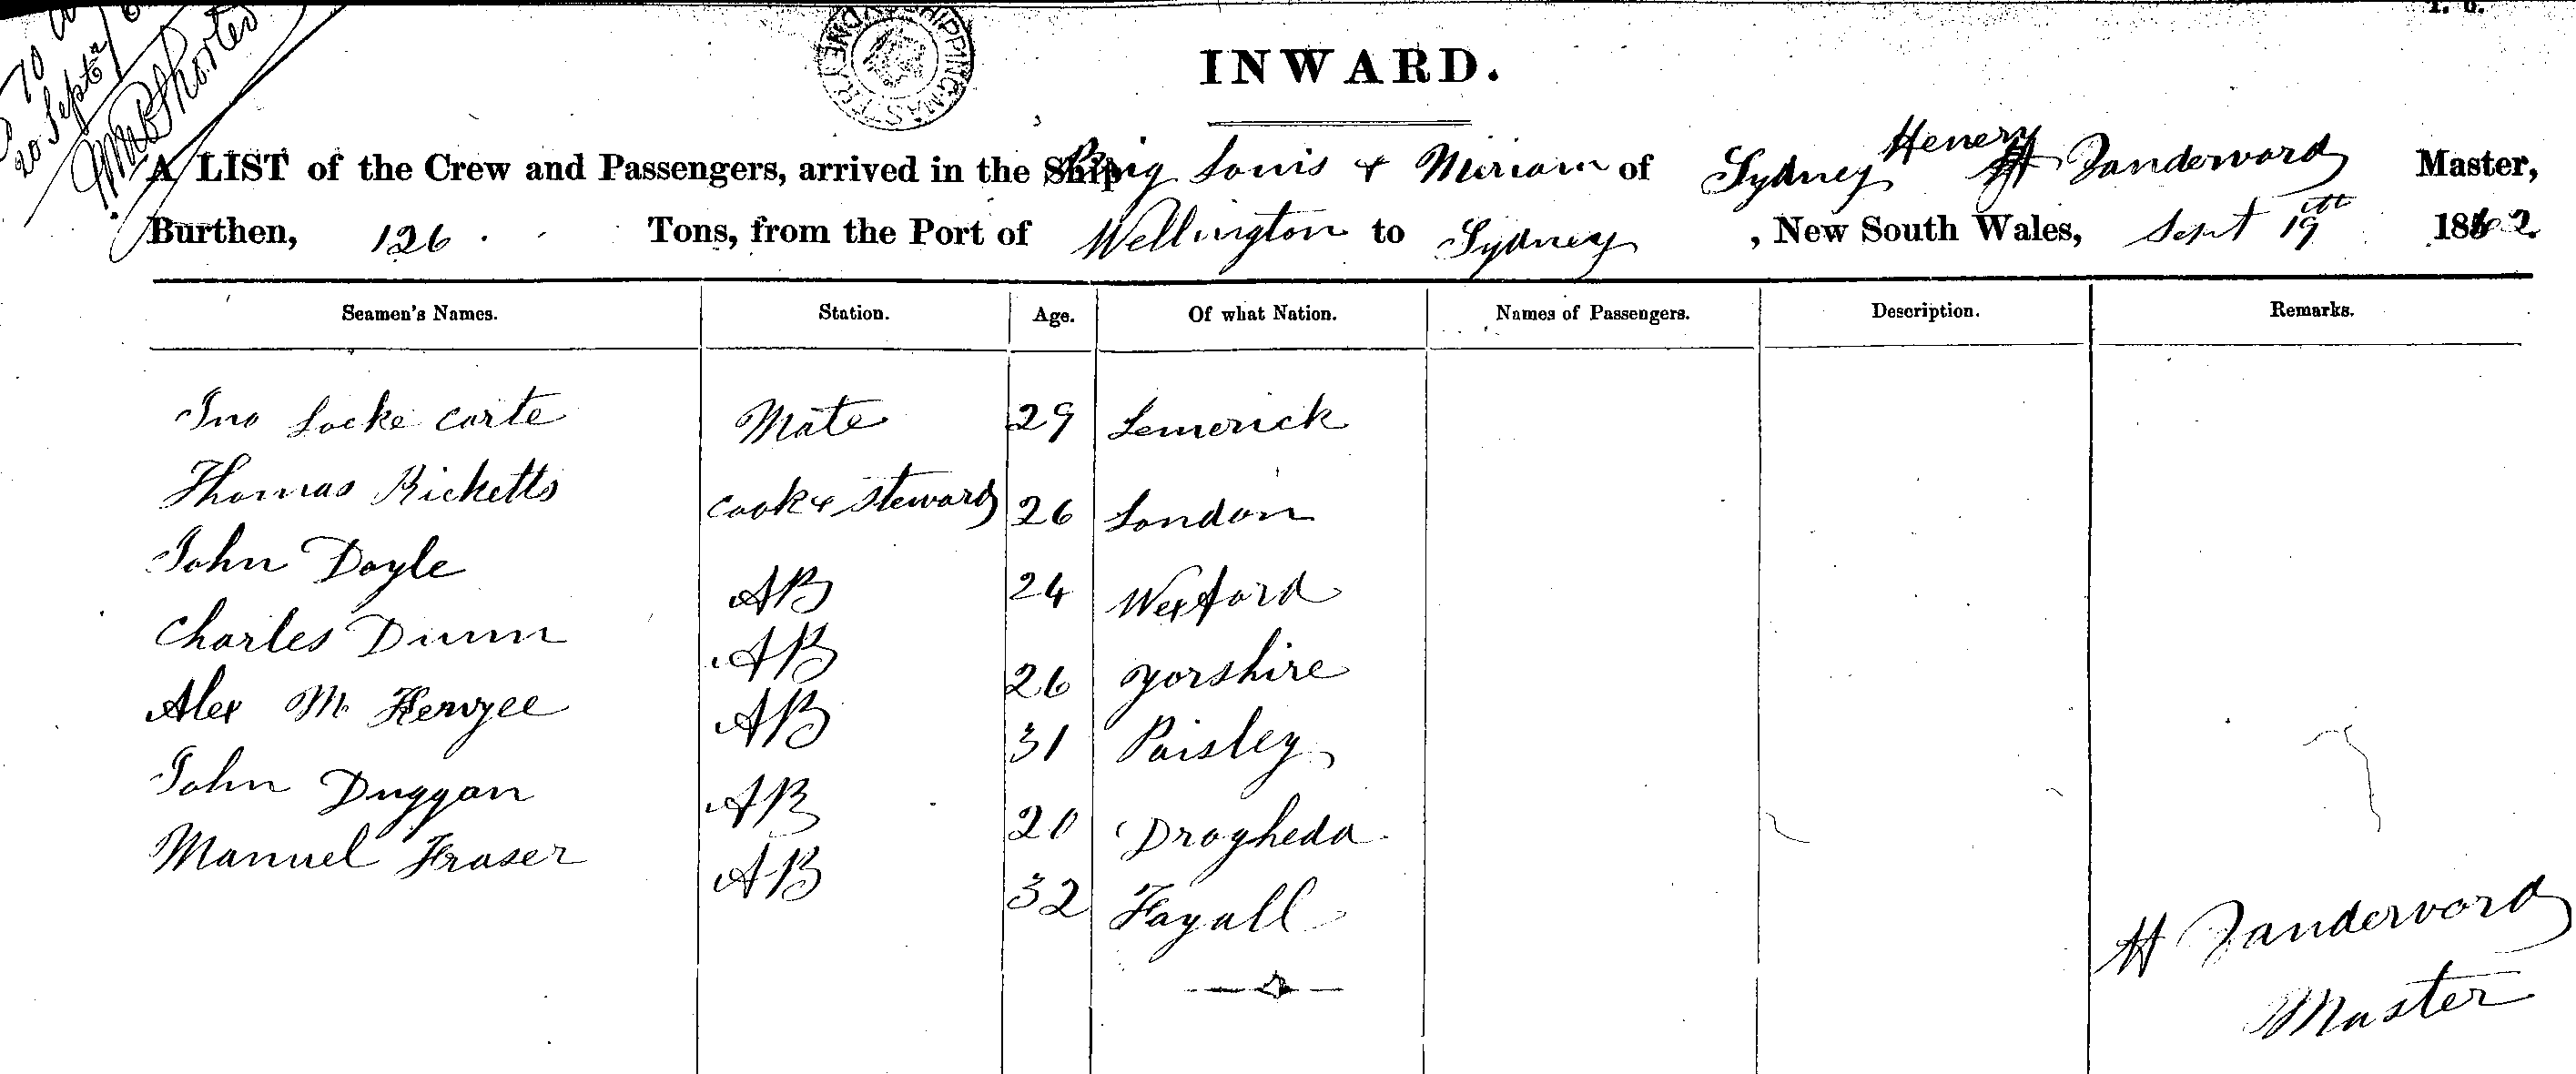 70
20 Septr
INWARD.
A LIST of the Crew and Passengers, arrived in the Ship Brig Louis & Miriam of Sydney Henery H Vandervord Master,
Burthen, 126 Tons, from the Port of Wellington to Sydney , New South Wales, Sept 19th 1862
Seamen's Names. Station. Age. Of what Nation. Names of Passengers. Description. Remarks.
Jno Locke Carte Mate 29 Lemerick
Thomas Ricketts Cook & Steward 26 London
John Doyle AB 24 Wexford
Charles Dunn AB 26 Yorshire
Alex Mc Kenzee AB 31 Paisley
John Duggan AB 20 Drogheda
Manuel Fraser AB 32 Fayall
H Vandervord
Master